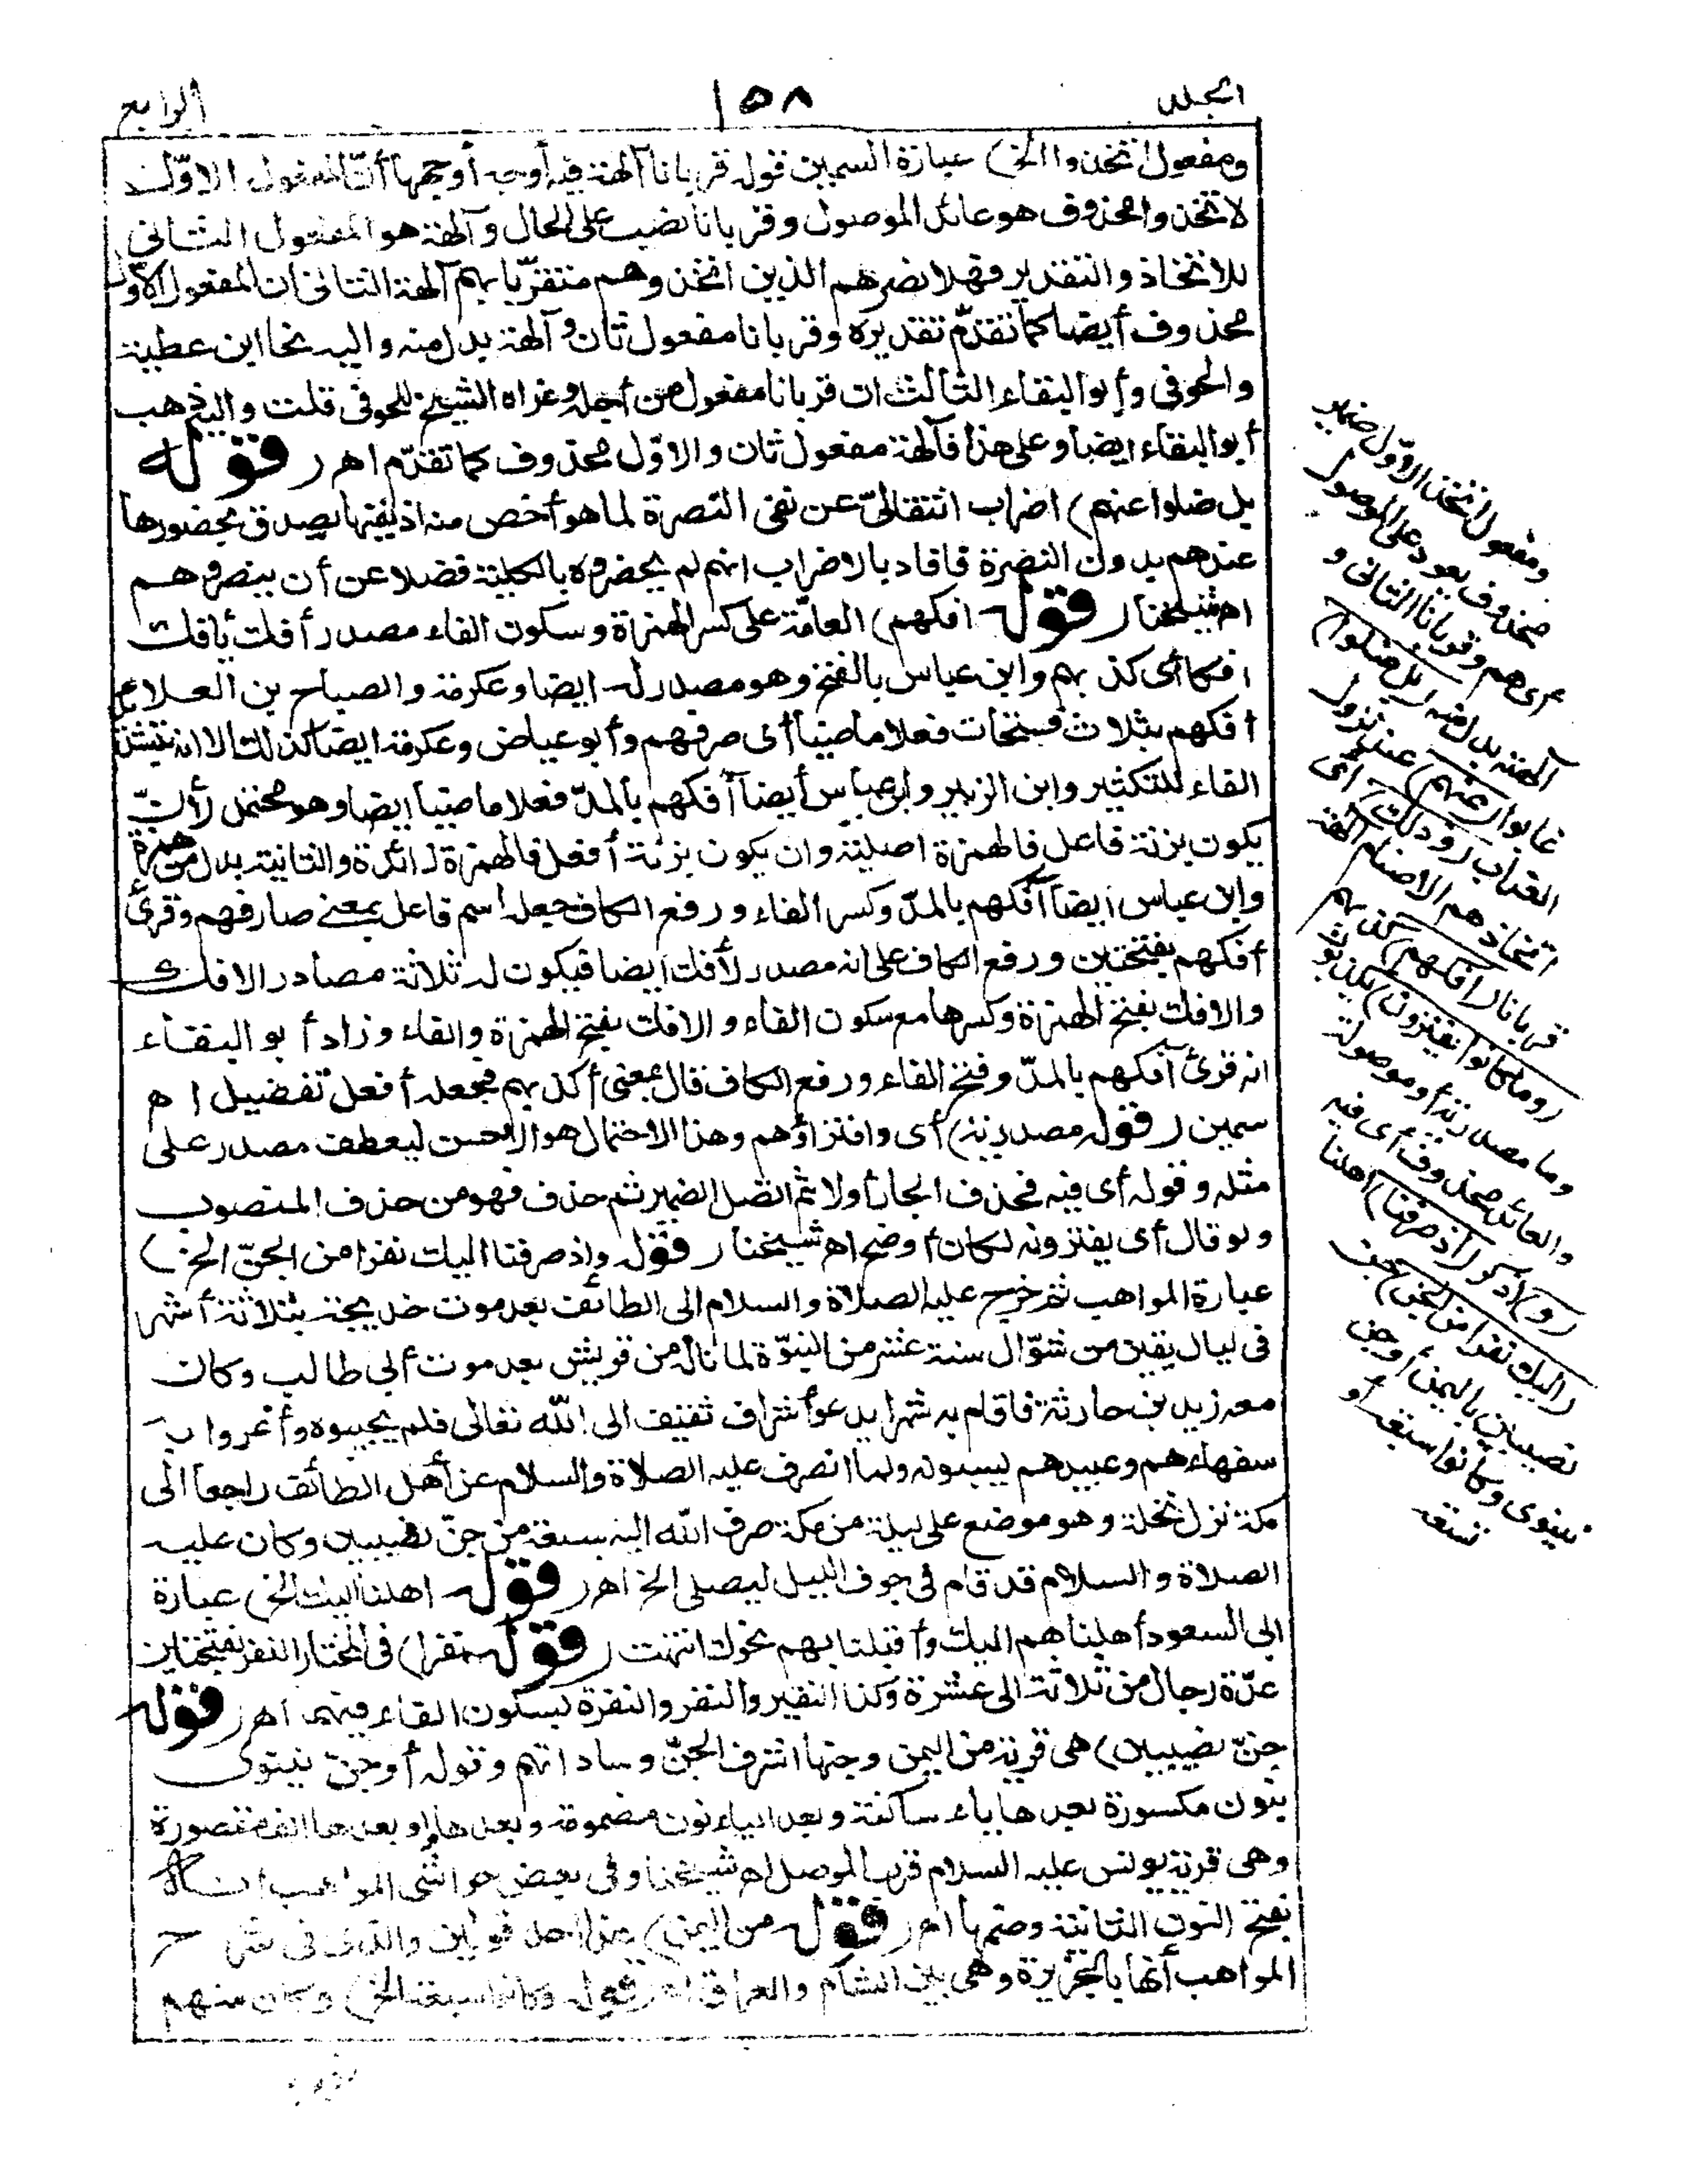 المجلد
١٥٨
الرابع
ومفعول اتخذوا الخ) عبارة السمين قوله قربانا آلهة فيه أوجه أوجهها أنّ المفعول الاوّل
لاتخذوا محذوف هو عائد الموصول وقربانا نصب على الحال وآلهة هو المفعول الثانى
للاتخاذ والتقدير فهلا نصرهم الذين اتخذوهم متقرّبا بهم آلهة الثانى ان المفعول الاوّل
محذوف أيضا كما تقدّم تقديره وقربانا مفعول ثان وآلهة بدل منه واليه نحا ابن عطية
والحوفى وأبو البقاء الثالث ان قربانا مفعول من أجله وعزاه الشيخ للحوفى قلت واليه ذهب
أبو البقاء ايضا وعلى هذا فآلهة مفعول ثان والاوّل محذوف كما تقدّم اهـ (قوله
بل ضلوا عنهم) اضراب انتقالىّ عن نفى النصرة لما هو أخص منه اذ نفيها يصدق بحضورها
عندهم بدون النصرة فافاد بالاضراب انهم لم يحضروه بالكلية فضلا عن أن ينصروهم
اهـ شيخنا (قوله افكهم) العامّة على كسر الهمزة وسكون الفاء مصدر أفك يأفك
افكا أى كذبهم وابن عباس بالفتح وهو مصدر له ايضا وعكرمة والصباح بن العلاء
أفكهم بثلاث فتحات فعلا ماضيا أى صرفهم وأبو عياض وعكرمة ايضا كذلك الا انه بتشديد
الفاء للتكثير وابن الزبير وابن عباس أيضا آفكهم بالمدّ فعلا ماضيا ايضا وهو محتمل لأن
يكون بزنة فاعل فالهمزة اصلية وان يكون بزنة أفعل فالهمزة زائدة والثانية بدل من همزة
وابن عباس ايضا آفكهم بالمدّ وكسر الفاء ورفع الكاف جعله اسم فاعل بمعنى صارفهم وقرئ
أفكهم بفتحتين ورفع الكاف على انه مصدر لأفك ايضا فيكون له ثلاثة مصادر الافك
والافك بفتح الهمزة وكسرها مع سكون الفاء والافك بفتح الهمزة والفاء وزاد أبو البقاء
انه قرئ آفكهم بالمدّ وفتح الفاء ورفع الكاف قال بمعنى أكذبهم فجعله أفعل تفضيل اهـ
سمين (قوله مصدرية) أى وافتراؤهم وهذا الاحتمال هو الاحسن ليعطف مصدر على
مثله وقوله أى فيه فحذف الجار أولا ثم اتصل الضمير ثم حذف فهو من حذف المنصوب
ولو قال أى يفترونه لكان أوضح اهـ شيخنا (قوله واذ صرفنا اليك نفرا من الجنّ الخ)
عبارة المواهب ثم خرج عليه الصلاة والسلام الى الطائف بعد موت خديجة بثلاثة أشهر
فى ليال بقين من شوّال سنة عشر من النبوّة لما ناله من قريش بعد موت أبى طالب وكان
معه زيد بن حارثة فاقام به شهرا يدعو أشراف ثقيف الى الله تعالى فلم يجيبوه وأغروا به
سفهاءهم وعبيدهم يسبونه ولما انصرف عليه الصلاة والسلام عن أهل الطائف راجعا الى
مكة نزل نخلة وهو موضع على ليلة من مكة صرف الله اليه سبعة من جنّ نصيبين وكان عليه
الصلاة والسلام قد قام فى جوف الليل ليصلى الخ اهـ (قوله املنا اليك الخ) عبارة
ابى السعود أملناهم اليك وأقبلنا بهم نحوك انتهت (قوله نفرا) فى المختار النفر بفتحتين
عدّة رجال من ثلاثة الى عشرة وكذا النفير والنفر والنفرة بسكون الفاء فيهما اهـ (قوله
جنّ نصيبين) هى قرية من اليمن وجنها اشرف الجنّ وساداتهم وقوله أو جنّ نينوى
بنون مكسورة بعدها ياء ساكنة وبعد الياء نون مضمومة وبعدها واو بعدها الف مقصورة
وهى قرية يونس عليه السلام قرب الموصل اهـ شيخنا وفى بعض حواشى المواهب انه
بفتح النون الثانية وضمها اهـ (قوله من اليمن) هذا احد قولين والذى فى شرح
المواهب أنها بالجزيرة وهى بين الشام والعراق اهـ (قوله وكانوا سبعة الخ) وكان منهم
ومفعول اتخذ الاوّل ضمير
محذوف يعود على الموصول
أى هم وقربانا الثانى و
آلهة بدل منه (بل ضلوا)
غابوا (عنهم) عند نزول
العذاب (وذلك) أى
اتخاذهم الاصنام آلهة
قربانا (افكهم) كذبهم
(وما كانوا يفترون) يكذبون
وما مصدرية أو موصولة
والعائد محذوف أى فيه
(و) اذكر (اذ صرفنا) املنا
(اليك نفرا من الجن) جن
نصيبين باليمن أو جن
نينوى وكانوا سبعة أو
تسعة